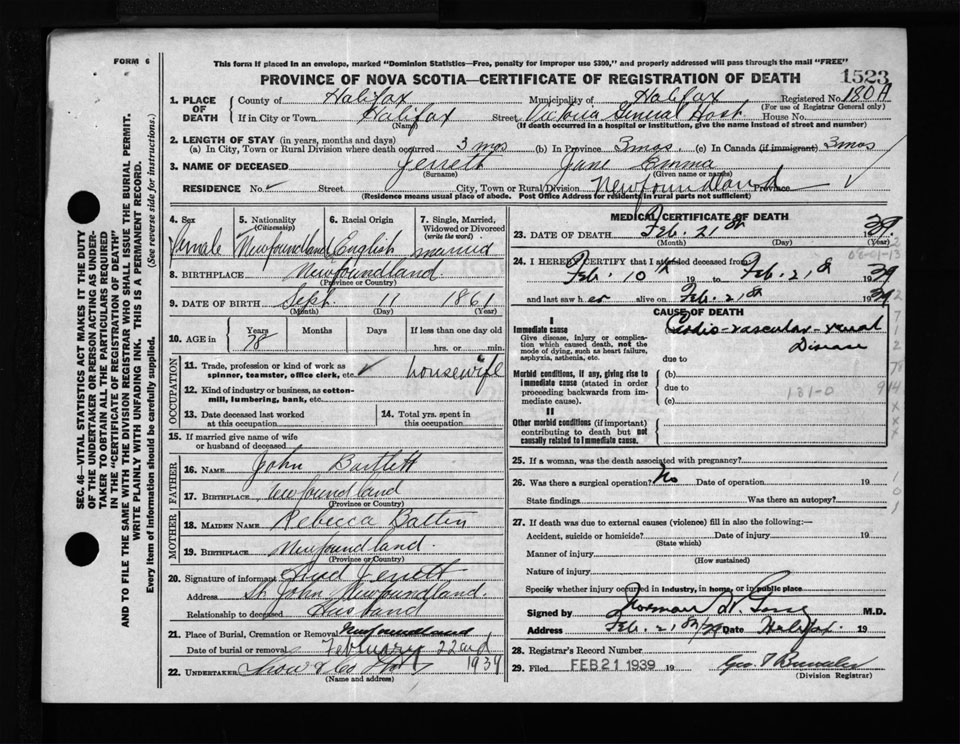 FORM 6
This form if placed in an envelope, marked "Dominion Statistics—Free, penalty for improper use $300," and properly addressed will pass through the mail "FREE"
PROVINCE OF NOVA SCOTIA—CERTIFICATE OF REGISTRATION OF DEATH 1523
1. PLACE OF DEATH County of Halifax Municipality of Halifax Registered No. 180A
(For use of Registrar General only)
If in City or Town Halifax Street Victoria General Host. House No.
(Name) (If death occurred in a hospital or institution, give the name instead of street and number)
2. LENGTH OF STAY (in years, months and days)
(a) In City, Town or Rural Division where death occurred 3 mos (b) In Province 3 mos. (c) In Canada (if immigrant) 3 mos
3. NAME OF DECEASED Jerrett Jane Emma
(Surname) (Given name or names)
RESIDENCE No. Street City, Town or Rural Division Newfoundland Province
(Residence means usual place of abode. Post Office Address for residents in rural parts not sufficient)
SEC. 46—VITAL STATISTICS ACT MAKES IT THE DUTY
OF THE UNDERTAKER OR PERSON ACTING AS UNDER-
TAKER TO OBTAIN ALL THE PARTICULARS REQUIRED
IN THE "CERTIFICATE OF REGISTRATION OF DEATH"
AND TO FILE THE SAME WITH THE DIVISION REGISTRAR WHO SHALL ISSUE THE BURIAL PERMIT.
WRITE PLAINLY WITH UNFADING INK. THIS IS A PERMANENT RECORD.
Every item of information should be carefully supplied. (See reverse side for instructions.)
4. Sex 5. Nationality (Citizenship) 6. Racial Origin 7. Single, Married, Widowed or Divorced (write the word)
female Newfoundland English married
8. BIRTHPLACE Newfoundland.
(Province or Country)
9. DATE OF BIRTH Sept. 11 1861
(Month) (Day) (Year)
10. AGE in Years Months Days If less than one day old
78 hrs. or min.
OCCUPATION
11. Trade, profession or kind of work as spinner, teamster, office clerk, etc. housewife
12. Kind of industry or business, as cotton-mill, lumbering, bank, etc.
13. Date deceased last worked at this occupation 14. Total yrs. spent in this occupation
15. If married give name of wife or husband of deceased
FATHER
16. NAME John Bartlett
17. BIRTHPLACE Newfoundland
(Province or Country)
MOTHER
18. MAIDEN NAME Rebecca Batten
19. BIRTHPLACE Newfoundland.
(Province or Country)
20. Signature of informant Jerrett
Address St. John Newfoundland.
Relationship to deceased Husband
21. Place of Burial, Cremation or Removal Newfoundland
Date of burial or removal February 22nd 1939
22. UNDERTAKER Snow & Co
(Name and address)
MEDICAL CERTIFICATE OF DEATH
23. DATE OF DEATH Feb. 21st 1939.
(Month) (Day) (Year)
24. I HEREBY CERTIFY that I attended deceased from
Feb. 10th 19 to Feb. 21st 1939
and last saw her alive on Feb. 21st 1939
CAUSE OF DEATH
I
Immediate cause Cardio-vascular-renal
Give disease, injury or complication which caused death, not the mode of dying, such as heart failure, asphyxia, asthenia, etc. Disease
due to
Morbid conditions, if any, giving rise to immediate cause (stated in order proceeding backwards from immediate cause). (b)
due to 131-0
(c)
II
Other morbid conditions (if important) contributing to death but not causally related to immediate cause.
25. If a woman, was the death associated with pregnancy?
26. Was there a surgical operation? No Date of operation 19
State findings Was there an autopsy?
27. If death was due to external causes (violence) fill in also the following:—
Accident, suicide or homicide? Date of injury 19
(State which)
Manner of injury
(How sustained)
Nature of injury
Specify whether injury occurred in industry, in home, or in public place
Signed by Norman H. Gosse M.D.
Address Feb. 21st/39 Date Halifax. 19
28. Registrar's Record Number
29. Filed FEB 21 1939 19
(Division Registrar)